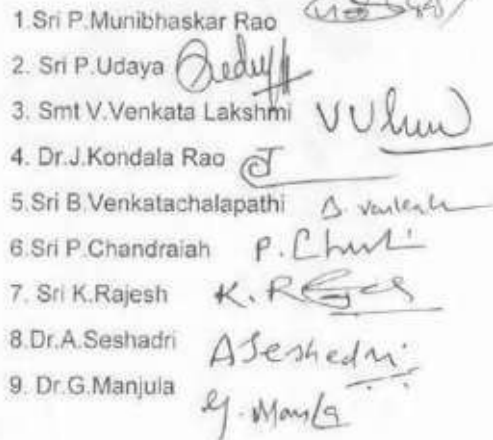 1.Sri P.Munibhaskar Rao
2. Sri P.Udaya
3. Smt V.Venkata Lakshmi
4. Dr.J.Kondala Rao
5.Sri B.Venkatachalapathi
6.Sri P.Chandraiah P.
7. Sri K.Rajesh K.
8.Dr.A.Seshadri A Seshadri
9. Dr.G.Manjula G.